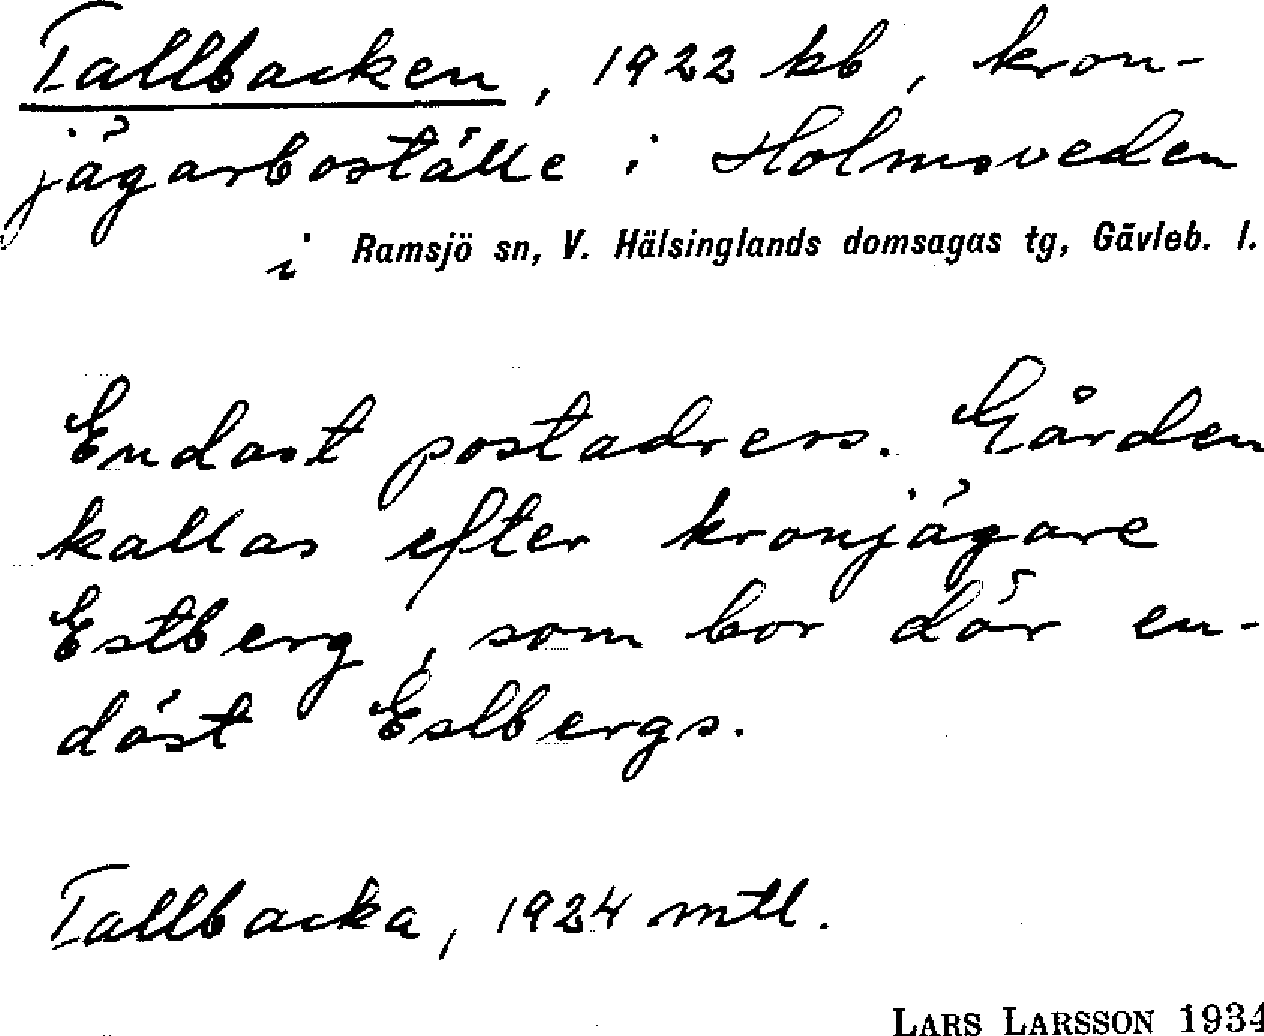 Tallbacken, 1922 kb, kron-
jägarboställe i Holmsveden
i Ramsjö sn, V. Hälsinglands domsagas tg, Gävleb. l.
Endast postadress. Gården
kallas efter kronjägare
Estberg, som bor där en-
dast Estbergs.
Tallbacka, 1924 mtl.
LARS LARSSON 1934